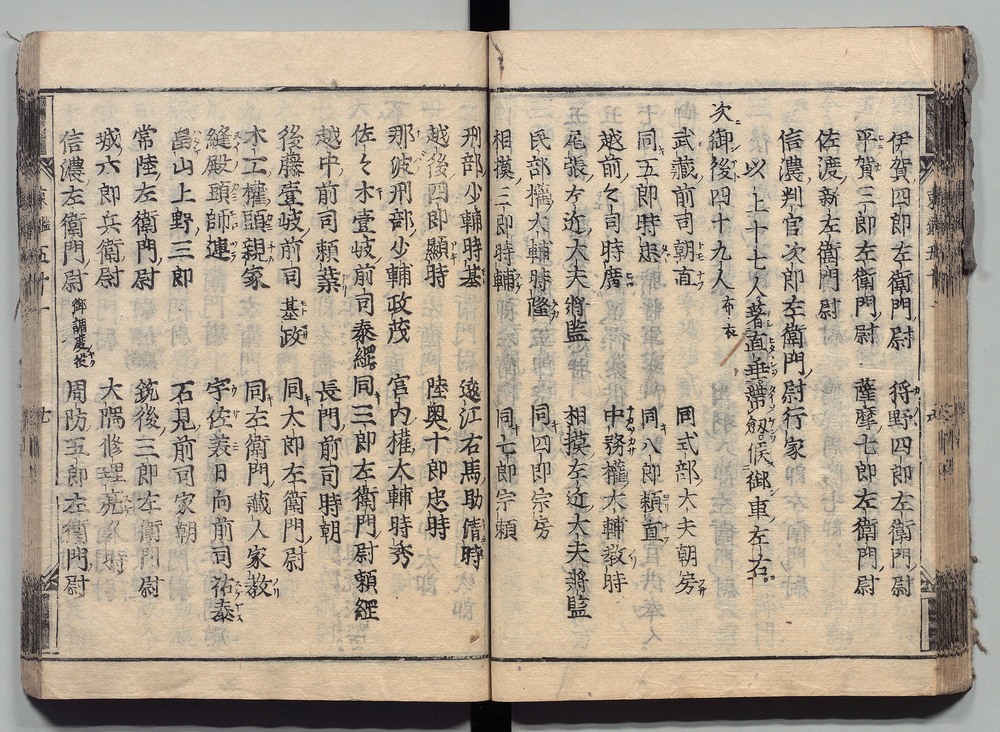 伊賀四郎左衛門尉 狩野四郎左衛門尉
平賀三郎左衛門尉 薩摩七郎左衛門尉
佐渡新左衛門尉
信濃判官次郎左衛門尉行家
以上十七人著直垂帶劔候御車左右
次御後四十九人 布衣
武藏前司朝直 同式部大夫朝房
同五郎時忠 同八郎頼直
越前々司時廣 中務權大輔教時
尾張左近大夫將監 相摸左近大夫將監
民部權大輔時隆 同四郎宗房
相摸三郎時輔 同七郎宗頼
刑部少輔時基 遠江右馬助清時
越後四郎顯時 陸奥十郎忠時
那波刑部少輔政茂 宮内權大輔時秀
佐々木壹岐前司泰綱 同三郎左衛門尉頼綱
越中前司頼業 長門前司時朝
後藤壹岐前司基政 同太郎左衛門尉
木工權頭親家 同左衛門藏人家教
縫殿頭師連 宇佐美日向前司祐泰
畠山上野三郎 石見前司家朝
常陸左衛門尉 筑後三郎左衛門尉
城六郎兵衛尉 大隅修理亮久時
信濃左衛門尉 御調度役 周防五郎左衛門尉
東鑑五十一 七